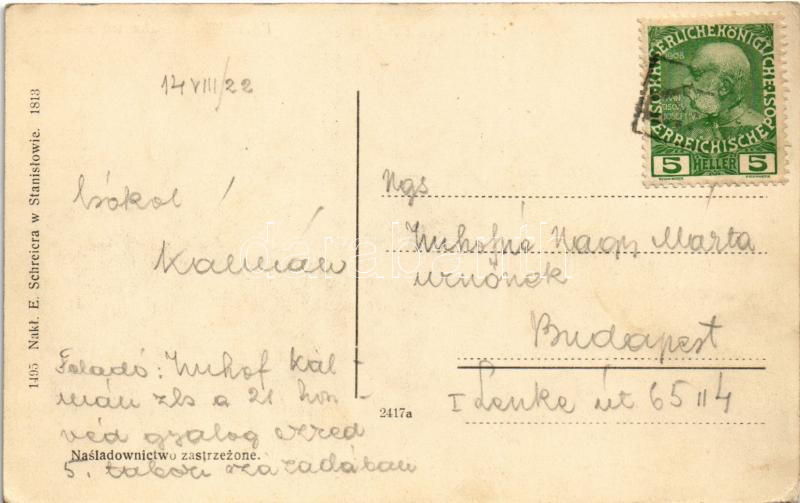 14 VIII/22
Csókol
Kálmán
Feladó: Imhof Kál-
mán zls a 21 hon-
véd gyalog ezred
5. tabori századában
Naśladownictwo zastrzeżone.
1495 Nakł. E. Schreiera w Stanisłowie. 1813
2417a
KAISERLICHE KÖNIGLICHE
ÖSTERREICHISCHE POST
1908
5 HELLER 5
Ngs
Imhofné Nagy Marta
urnőnek
Budapest
I Lenke út 65 II 4
darabanth